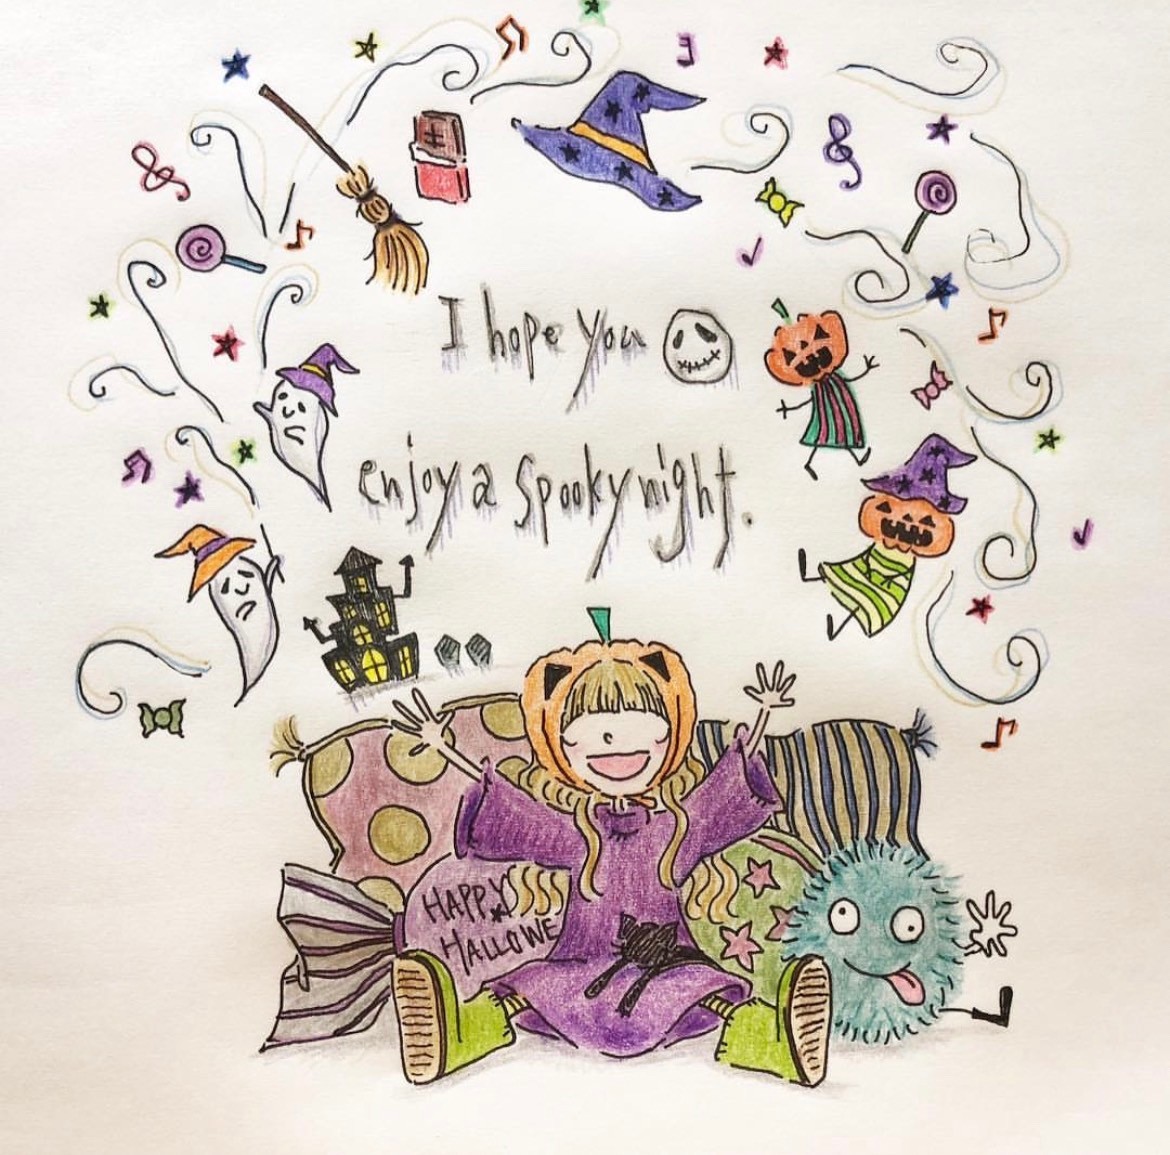 I hope you
enjoy a spooky night.
HAPPY
HALLOWE